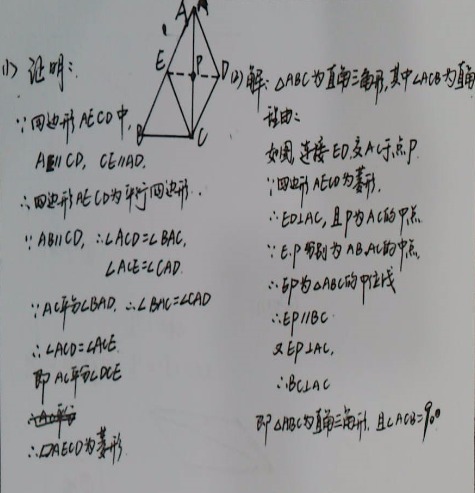 A
E
P
D
B
C
(1) 证明:
∵四边形AECD中,
AE∥CD, CE∥AD.
∴四边形AECD为平行四边形.
∵AB∥CD, ∴∠ACD=∠BAC,
∠ACE=∠CAD.
∵AC平分∠BAD, ∴∠BAC=∠CAD
∴∠ACD=∠ACE.
即AC平分∠DCE
∴▱AECD为菱形
(2)解: △ABC为直角三角形,其中∠ACB为直角
理由:
如图,连接ED交AC于点P.
∵四边形AECD为菱形.
∴ED⊥AC, 且P为AC的中点.
∵E.P分别为AB.AC的中点,
∴EP为△ABC的中位线
∴EP∥BC
又EP⊥AC,
∴BC⊥AC
即△ABC为直角三角形, 且∠ACB=90°